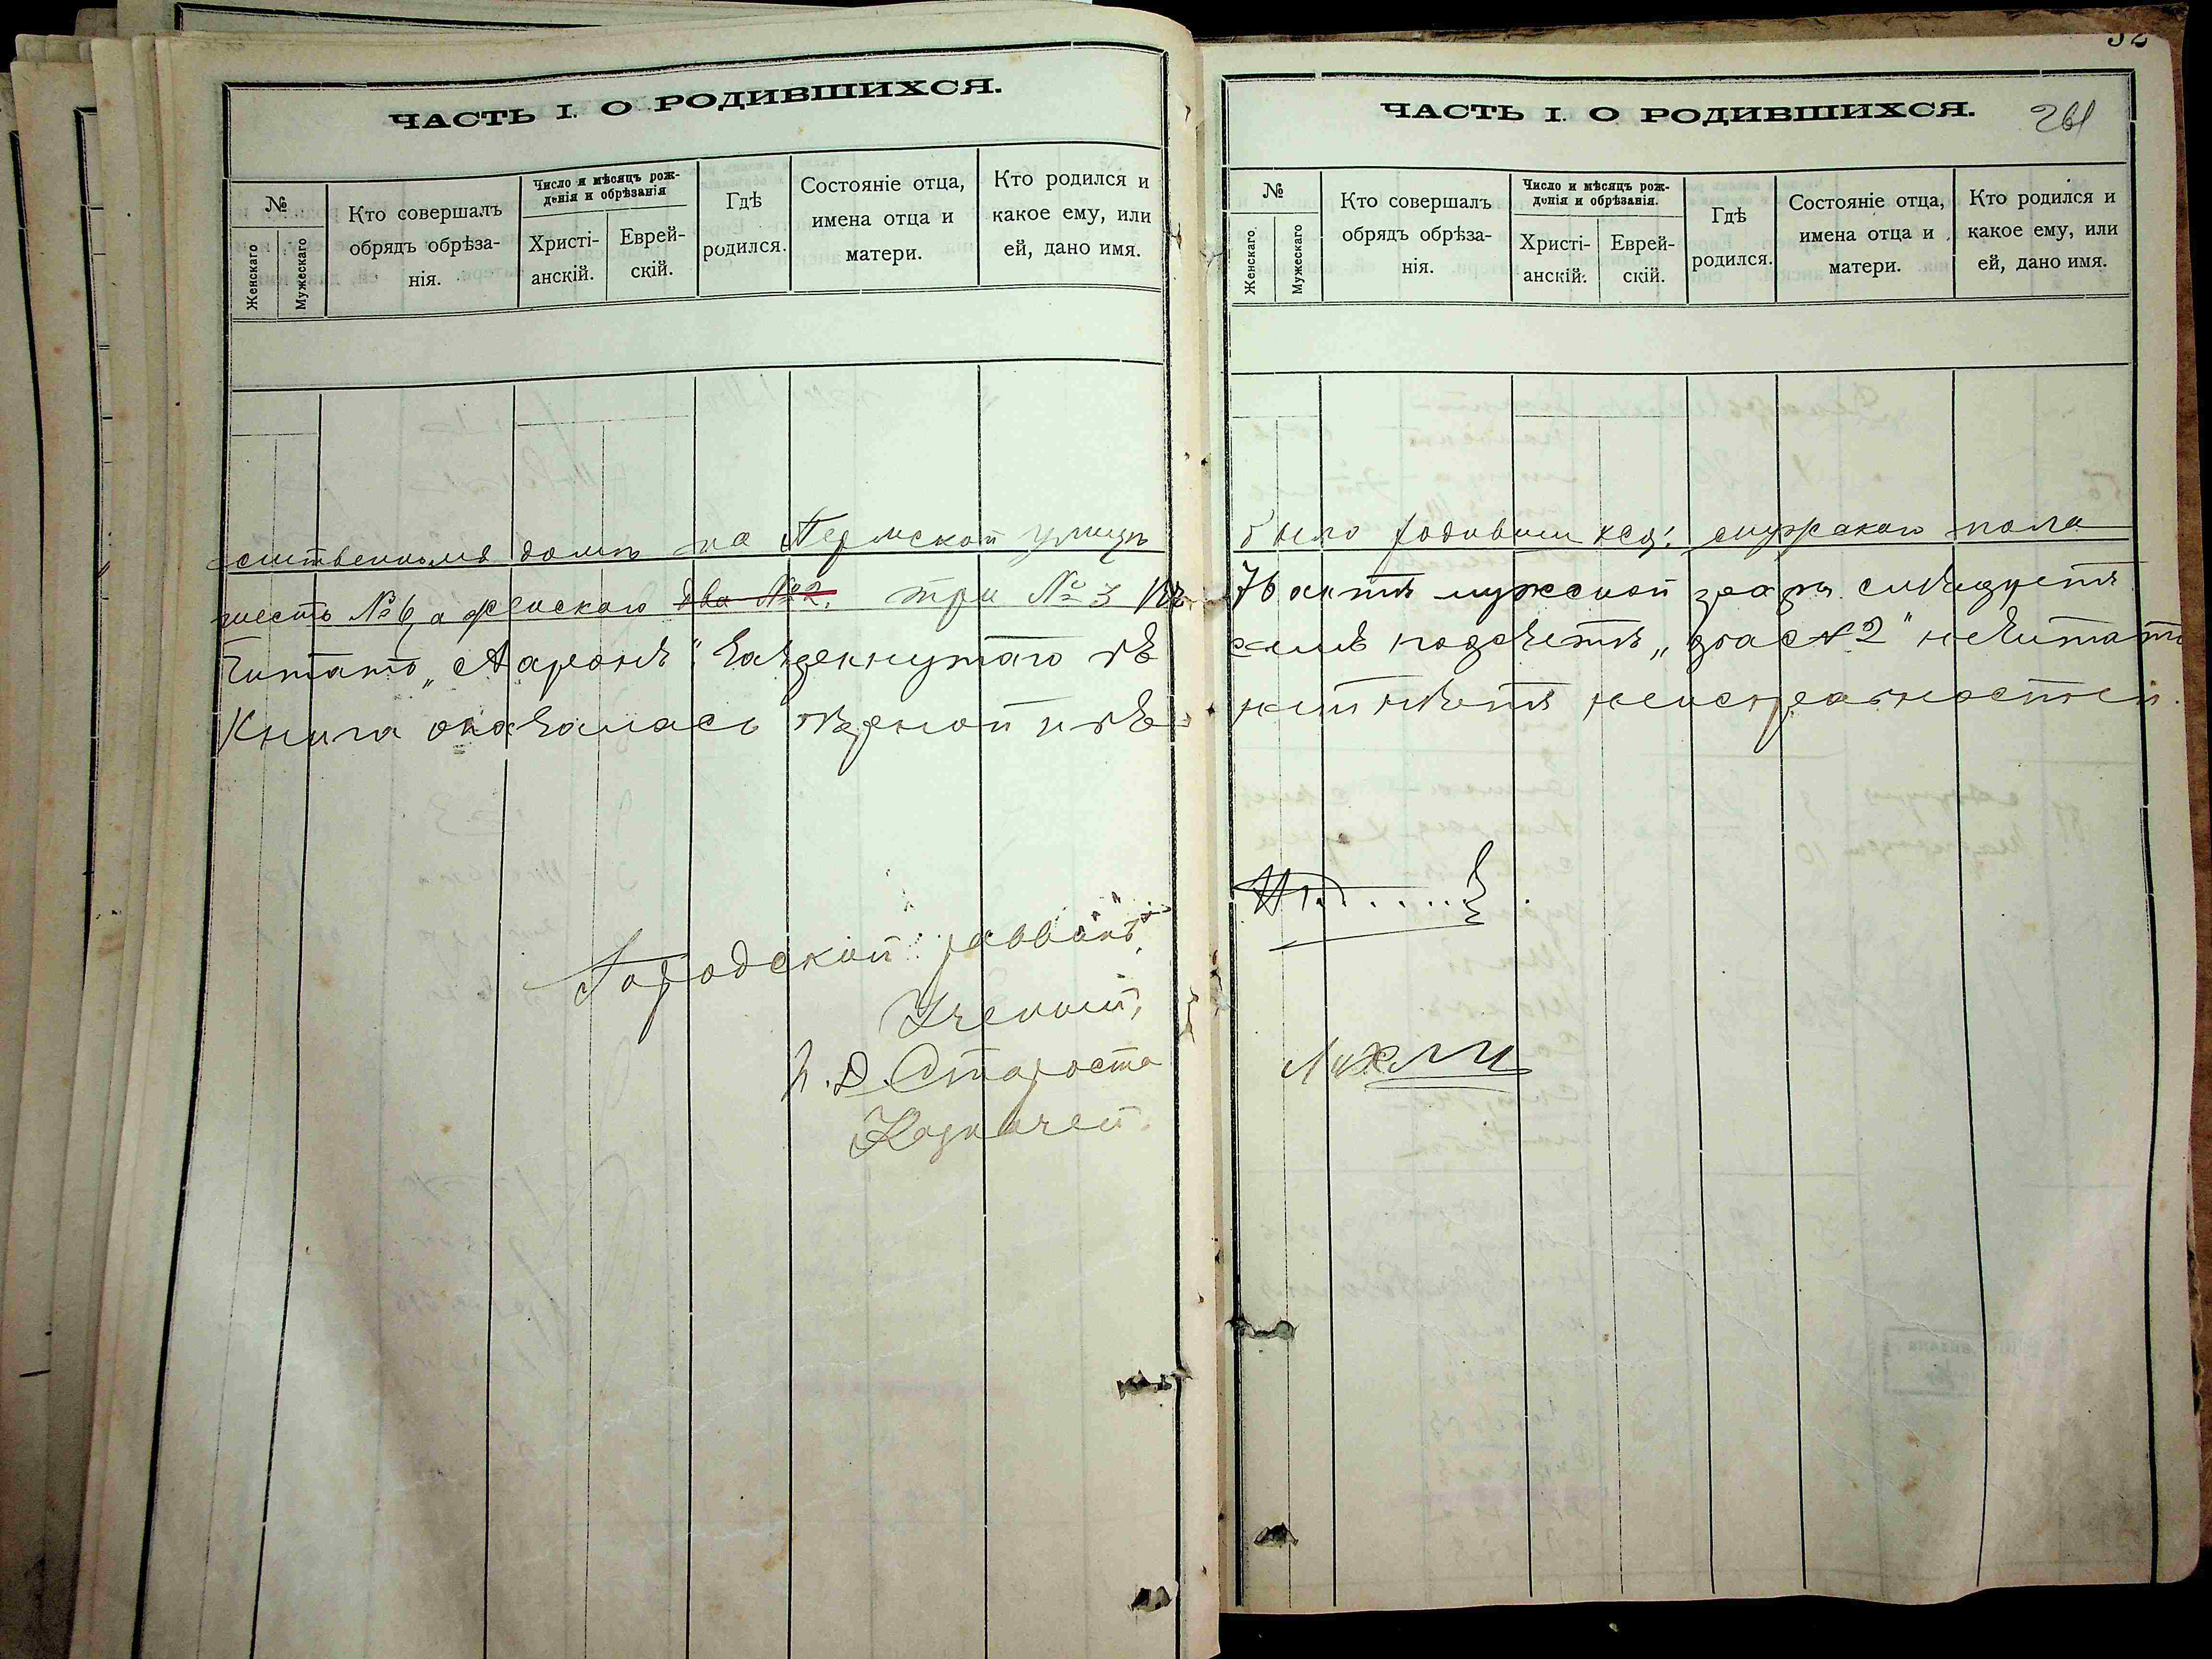 ЧАСТЬ I. О РОДИВШИХСЯ.
№
Женскаго
Мужескаго
Кто совершалъ
обрядъ обрѣза-
нія.
Число и мѣсяцъ рож-
денія и обрѣзанія
Христі-
анскій.
Еврей-
скій.
Гдѣ
родился.
Состояніе отца,
имена отца и
матери.
Кто родился и
какое ему, или
ей, дано имя.
домѣ на Пермской улицѣ
шесть № 6, а женскаго два № 2. три № 3
Читать „Ааронъ“. Зачеркнутаго въ
Книга оказалась вѣрной и въ
Городской раввинъ
Ученый,
И. Д. Староста
Казначей.
32
ЧАСТЬ I. О РОДИВШИХСЯ.
261
№
Женскаго
Мужескаго
Кто совершалъ
обрядъ обрѣза-
нія.
Число и мѣсяцъ рож-
денія и обрѣзанія.
Христі-
анскій.
Еврей-
скій.
Гдѣ
родился.
Состояніе отца,
имена отца и
матери.
Кто родился и
какое ему, или
ей, дано имя.
было родившихся: мужскаго пола
актѣ мужской слѣдуетъ
семъ подсчетѣ „два № 2“ не читать
ней нѣтъ неисправностей.